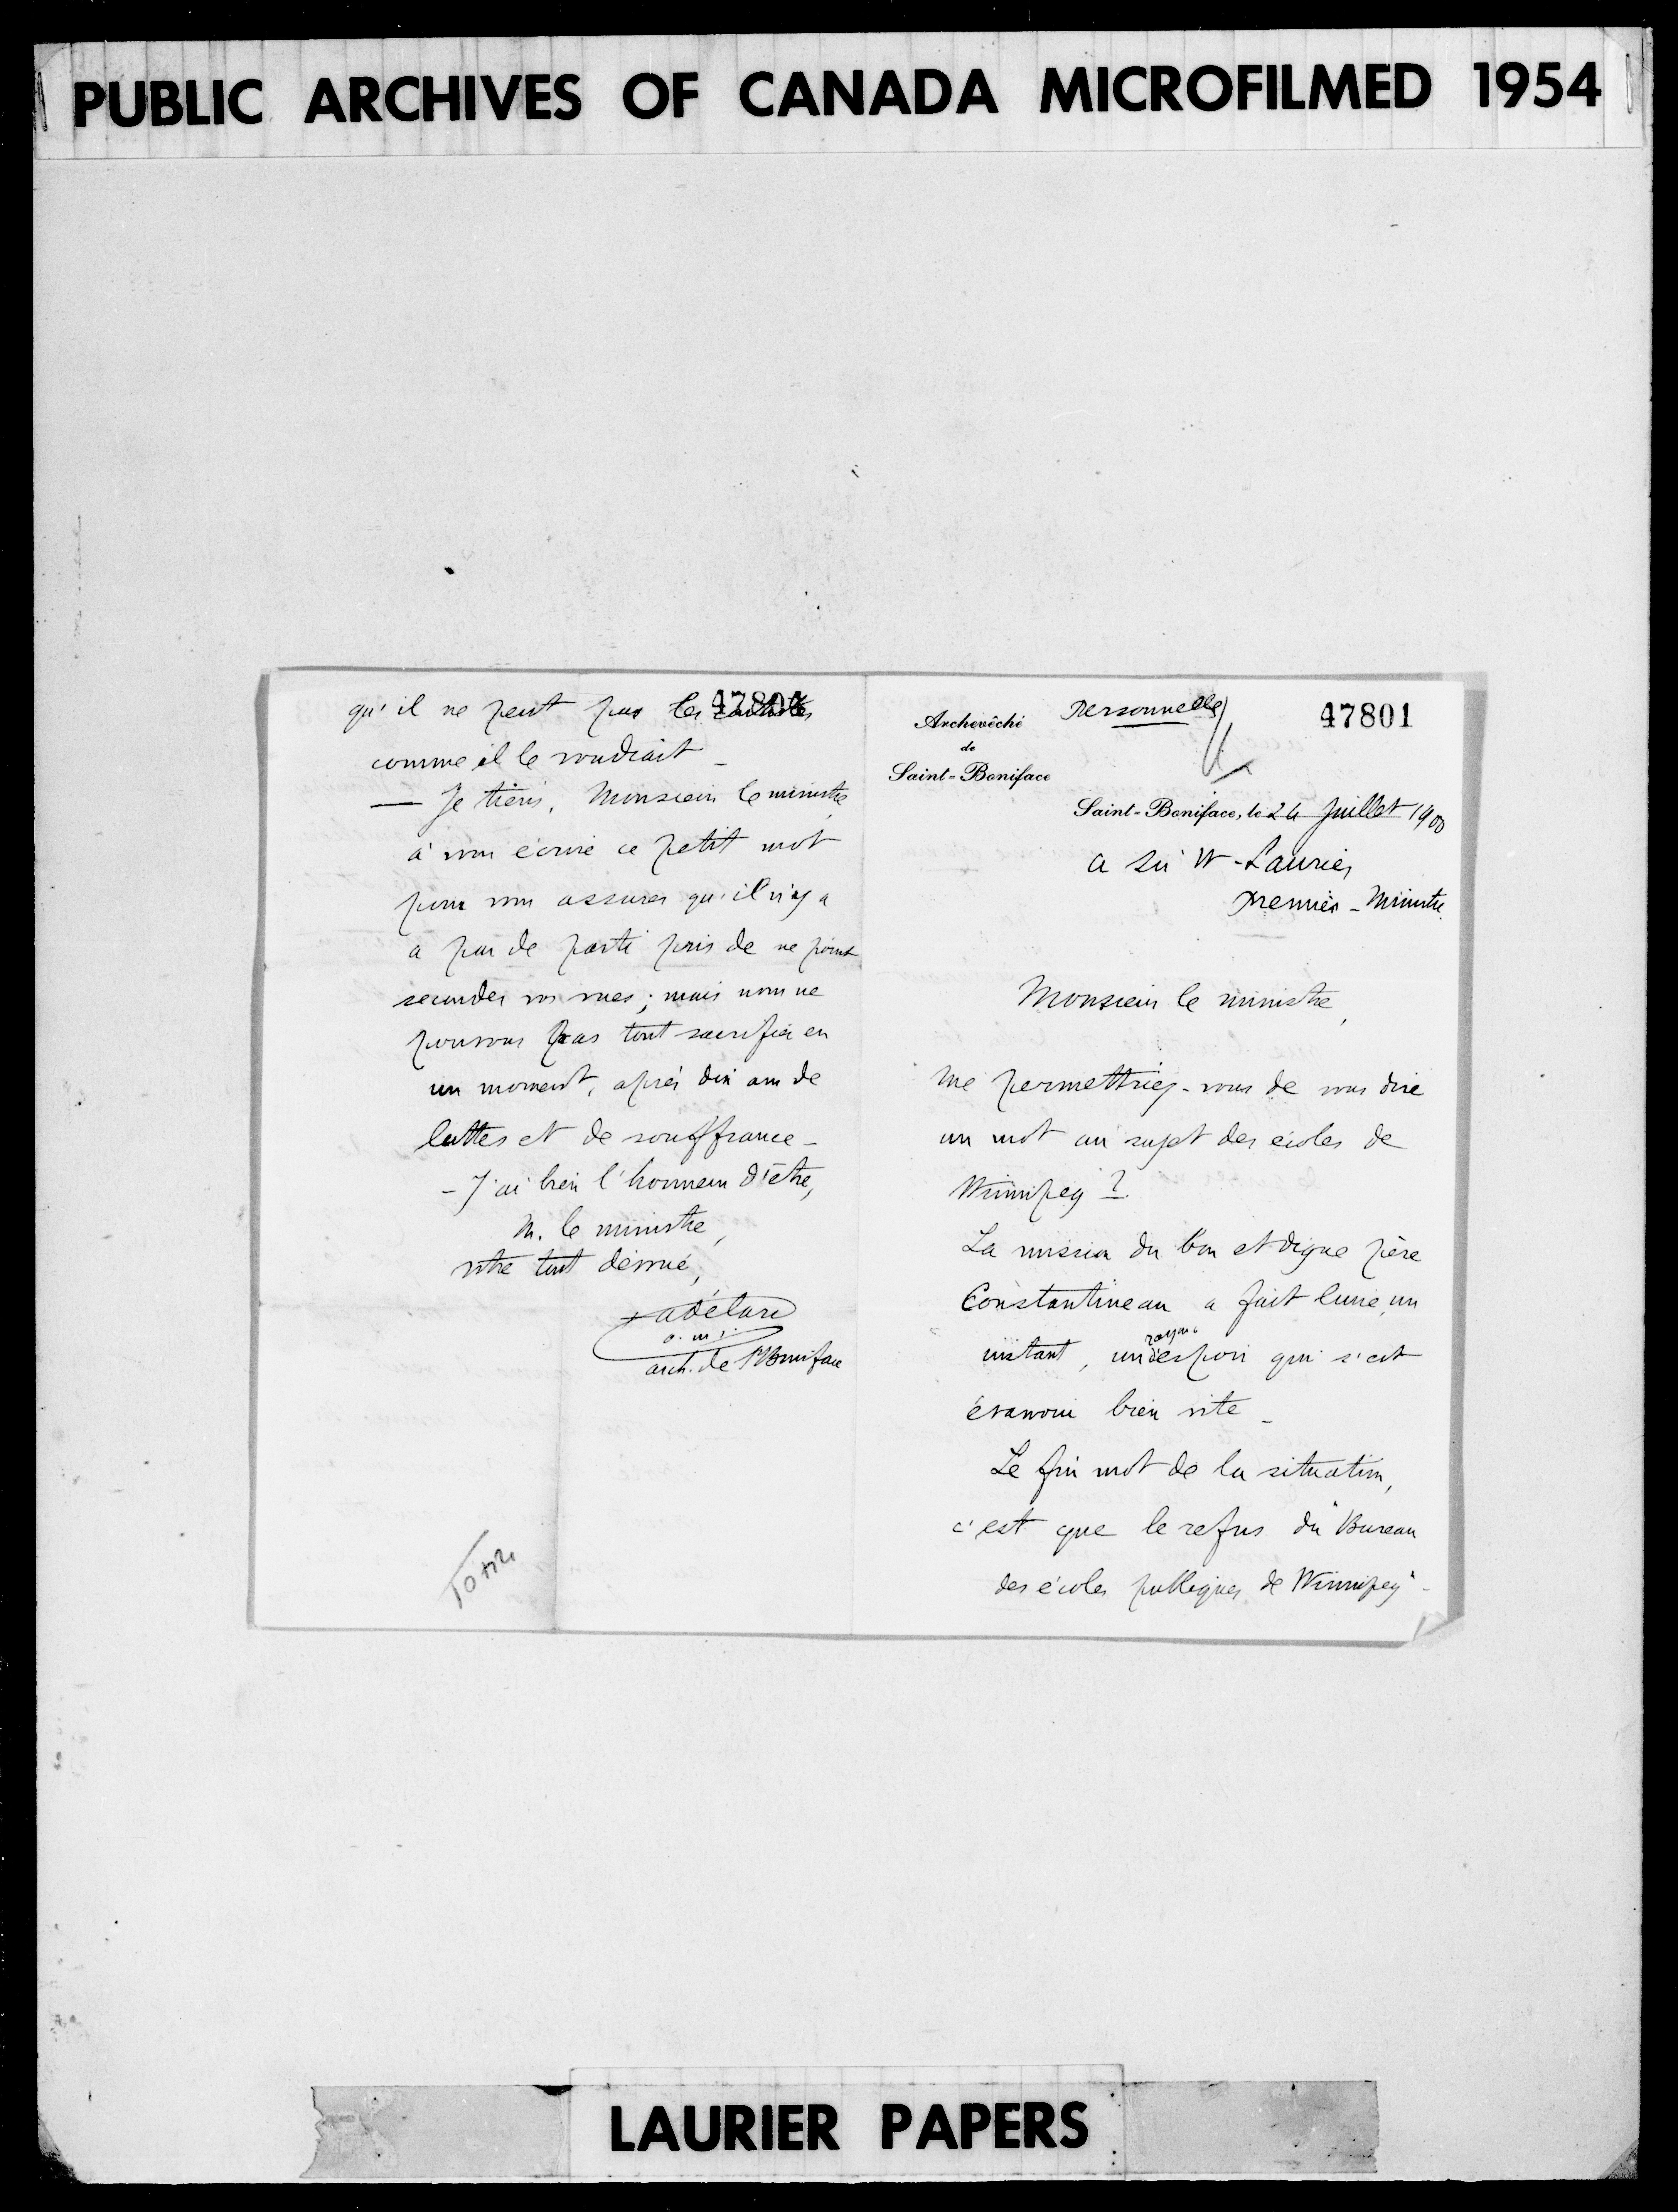 PUBLIC ARCHIVES OF CANADA MICROFILMED 1954
47804
qu'il ne peut pas les
comme il le voudrait _
— Je tiens, Monsieur le ministre,
à vous écrire ce petit mot
pour vous assurer qu'il n'y a
a pas de parti pris de ne point
seconder vos vues ; mais nous ne
pouvons pas tout sacrifier en
un moment, après dix ans de
luttes et de souffrance _
- J'ai bien l'honneur d'être,
M. le ministre,
votre tout dévoué,
+ adélard
o. m. i.
arch. de St Boniface
47801
Personnelle
Archevêché
de
Saint-Boniface
Saint-Boniface, le 24 Juillet 1900
a Sir W - Laurier
Premier - Ministre
Monsieur le ministre,
Me permettriez-vous de vous dire
un mot au sujet des écoles de
Winnipeg ?
La mission du bon et digne père
Constantineau a fait luire, un
instant, un rayon d'espoir qui s'est
évanoui bien vite _
Le fin mot de la situation,
c'est que le refus du "Bureau
des écoles publiques de Winnipeg" -
LAURIER PAPERS